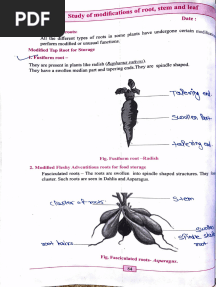 PDF
Study of modifications of root, stem and leaf
Date :
roots:
All the different types of roots in some plants have undergone certain
perform modified or unusual functions:
Modified Tap Root for Storage
1. Fusiform root -
They are present in plants like radish (Raphanus sativus).
They have a swollen median part and tapering ends. They are spindle shaped.
Tapering end
Swollen Part
tapering end
Fig. Fusiform root -Radish
2. Modified Fleshy Adventitious roots for food storage
Fasciculated roots - The roots are swollen into spindle shaped structures. They
cluster. Such roots are seen in Dahlia and Asparagus.
cluster of roots
Stem
root hairs
root
Fig. Fasciculated roots- Asparagus.